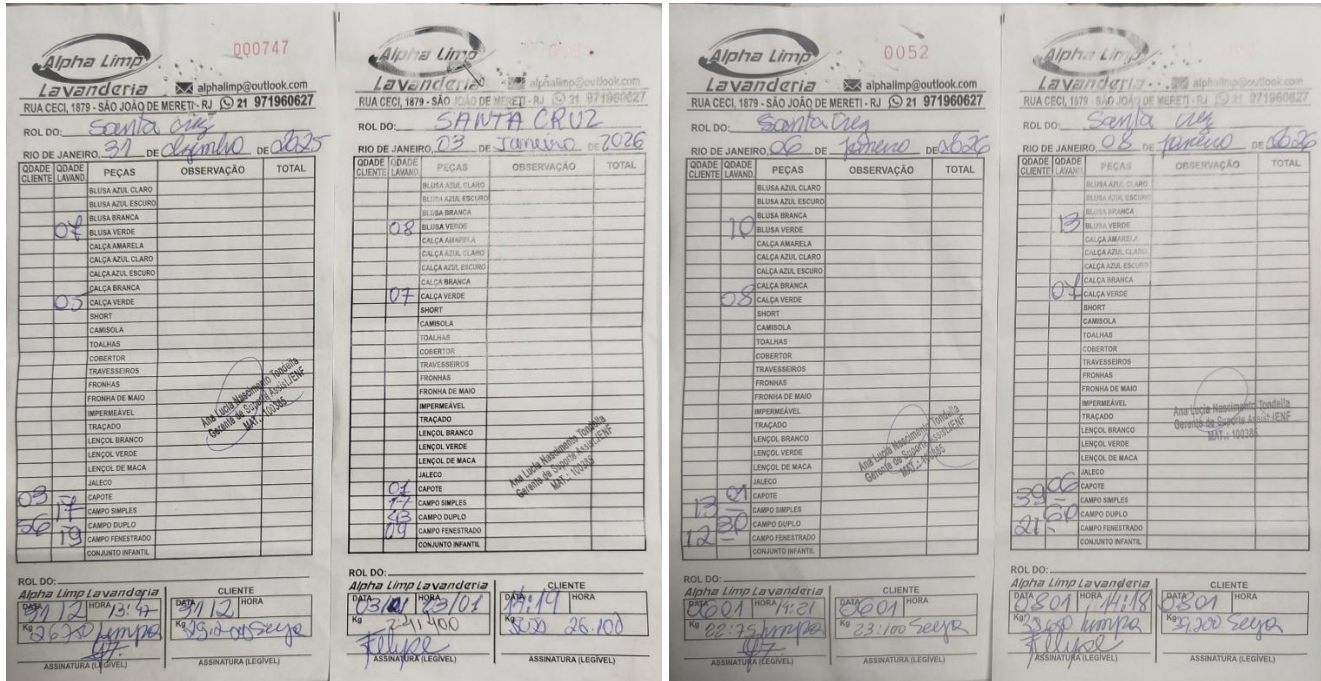 Alpha Limp
Lavanderia
000747
alphalimp@outlook.com
RUA CECI, 1879 - SÃO JOÃO DE MERETI - RJ 21 971960627
ROL DO: Santa Cruz
RIO DE JANEIRO, 31 DE dezembro DE 2025
QDADE CLIENTE QDADE LAVAND. PEÇAS OBSERVAÇÃO TOTAL
BLUSA AZUL CLARO
BLUSA AZUL ESCURO
BLUSA BRANCA
07 BLUSA VERDE
CALÇA AMARELA
CALÇA AZUL CLARO
CALÇA AZUL ESCURO
CALÇA BRANCA
05 CALÇA VERDE
SHORT
CAMISOLA
TOALHAS
COBERTOR
TRAVESSEIROS
FRONHAS
FRONHA DE MAIO
IMPERMEÁVEL
TRAÇADO
LENÇOL BRANCO
LENÇOL VERDE
LENÇOL DE MACA
JALECO
03 CAPOTE
17 CAMPO SIMPLES
56 CAMPO DUPLO
19 CAMPO FENESTRADO
CONJUNTO INFANTIL
Ana Lucia Nascimento Tondella
Gerente de Suporte Assist./ENF
MAT.: 100385
ROL DO:
Alpha Limp Lavanderia CLIENTE
DATA 31/12 HORA 13:47 DATA 31/12 HORA
Kg 26.750 limpa Kg
ASSINATURA (LEGÍVEL) ASSINATURA (LEGÍVEL)
Alpha Limp
Lavanderia
alphalimp@outlook.com
RUA CECI, 1879 - SÃO JOÃO DE MERETI - RJ 21 971960627
ROL DO: SANTA CRUZ
RIO DE JANEIRO, 03 DE Janeiro DE 2026
QDADE CLIENTE QDADE LAVAND. PEÇAS OBSERVAÇÃO TOTAL
BLUSA AZUL CLARO
BLUSA AZUL ESCURO
BLUSA BRANCA
08 BLUSA VERDE
CALÇA AMARELA
CALÇA AZUL CLARO
CALÇA AZUL ESCURO
CALÇA BRANCA
07 CALÇA VERDE
SHORT
CAMISOLA
TOALHAS
COBERTOR
TRAVESSEIROS
FRONHAS
FRONHA DE MAIO
IMPERMEÁVEL
TRAÇADO
LENÇOL BRANCO
LENÇOL VERDE
LENÇOL DE MACA
JALECO
01 CAPOTE
17 CAMPO SIMPLES
43 CAMPO DUPLO
09 CAMPO FENESTRADO
CONJUNTO INFANTIL
Ana Lucia Nascimento Tondella
Gerente de Suporte Assist./ENF
MAT.: 100385
ROL DO:
Alpha Limp Lavanderia CLIENTE
DATA 03/01 HORA 03/01 14:19 HORA
Kg Kg 26.100
Fellype
ASSINATURA (LEGÍVEL) ASSINATURA (LEGÍVEL)
Alpha Limp
Lavanderia
0052
alphalimp@outlook.com
RUA CECI, 1879 - SÃO JOÃO DE MERETI - RJ 21 971960627
ROL DO: Santa Cruz
RIO DE JANEIRO, 06 DE janeiro DE 2026
QDADE CLIENTE QDADE LAVAND. PEÇAS OBSERVAÇÃO TOTAL
BLUSA AZUL CLARO
BLUSA AZUL ESCURO
BLUSA BRANCA
10 BLUSA VERDE
CALÇA AMARELA
CALÇA AZUL CLARO
CALÇA AZUL ESCURO
CALÇA BRANCA
08 CALÇA VERDE
SHORT
CAMISOLA
TOALHAS
COBERTOR
TRAVESSEIROS
FRONHAS
FRONHA DE MAIO
IMPERMEÁVEL
TRAÇADO
LENÇOL BRANCO
LENÇOL VERDE
LENÇOL DE MACA
JALECO
01 CAPOTE
13 - CAMPO SIMPLES
30 CAMPO DUPLO
12 - CAMPO FENESTRADO
CONJUNTO INFANTIL
Ana Lucia Nascimento Tondella
Gerente de Suporte Assist./ENF
MAT.: 100385
ROL DO:
Alpha Limp Lavanderia CLIENTE
DATA 0601 HORA 14:21 DATA 0601 HORA
Kg 22:75 limpa Kg 23:100 Seya
ASSINATURA (LEGÍVEL) ASSINATURA (LEGÍVEL)
Alpha Limp
Lavanderia
alphalimp@outlook.com
RUA CECI, 1879 - SÃO JOÃO DE MERETI - RJ 21 971960627
ROL DO: Santa Cruz
RIO DE JANEIRO, 08 DE janeiro DE 2026
QDADE CLIENTE QDADE LAVAND. PEÇAS OBSERVAÇÃO TOTAL
BLUSA AZUL CLARO
BLUSA AZUL ESCURO
BLUSA BRANCA
13 BLUSA VERDE
CALÇA AMARELA
CALÇA AZUL CLARO
CALÇA AZUL ESCURO
CALÇA BRANCA
07 CALÇA VERDE
SHORT
CAMISOLA
TOALHAS
COBERTOR
TRAVESSEIROS
FRONHAS
FRONHA DE MAIO
IMPERMEÁVEL
TRAÇADO
LENÇOL BRANCO
LENÇOL VERDE
LENÇOL DE MACA
JALECO
06 CAPOTE
39 - CAMPO SIMPLES
50 CAMPO DUPLO
21 - CAMPO FENESTRADO
CONJUNTO INFANTIL
Ana Lucia Nascimento Tondella
Gerente de Suporte Assist./ENF
MAT.: 100385
ROL DO:
Alpha Limp Lavanderia CLIENTE
DATA 0801 HORA 14:18 DATA 0801 HORA
Kg limpa Kg 39,200 Seya
Fellype
ASSINATURA (LEGÍVEL) ASSINATURA (LEGÍVEL)